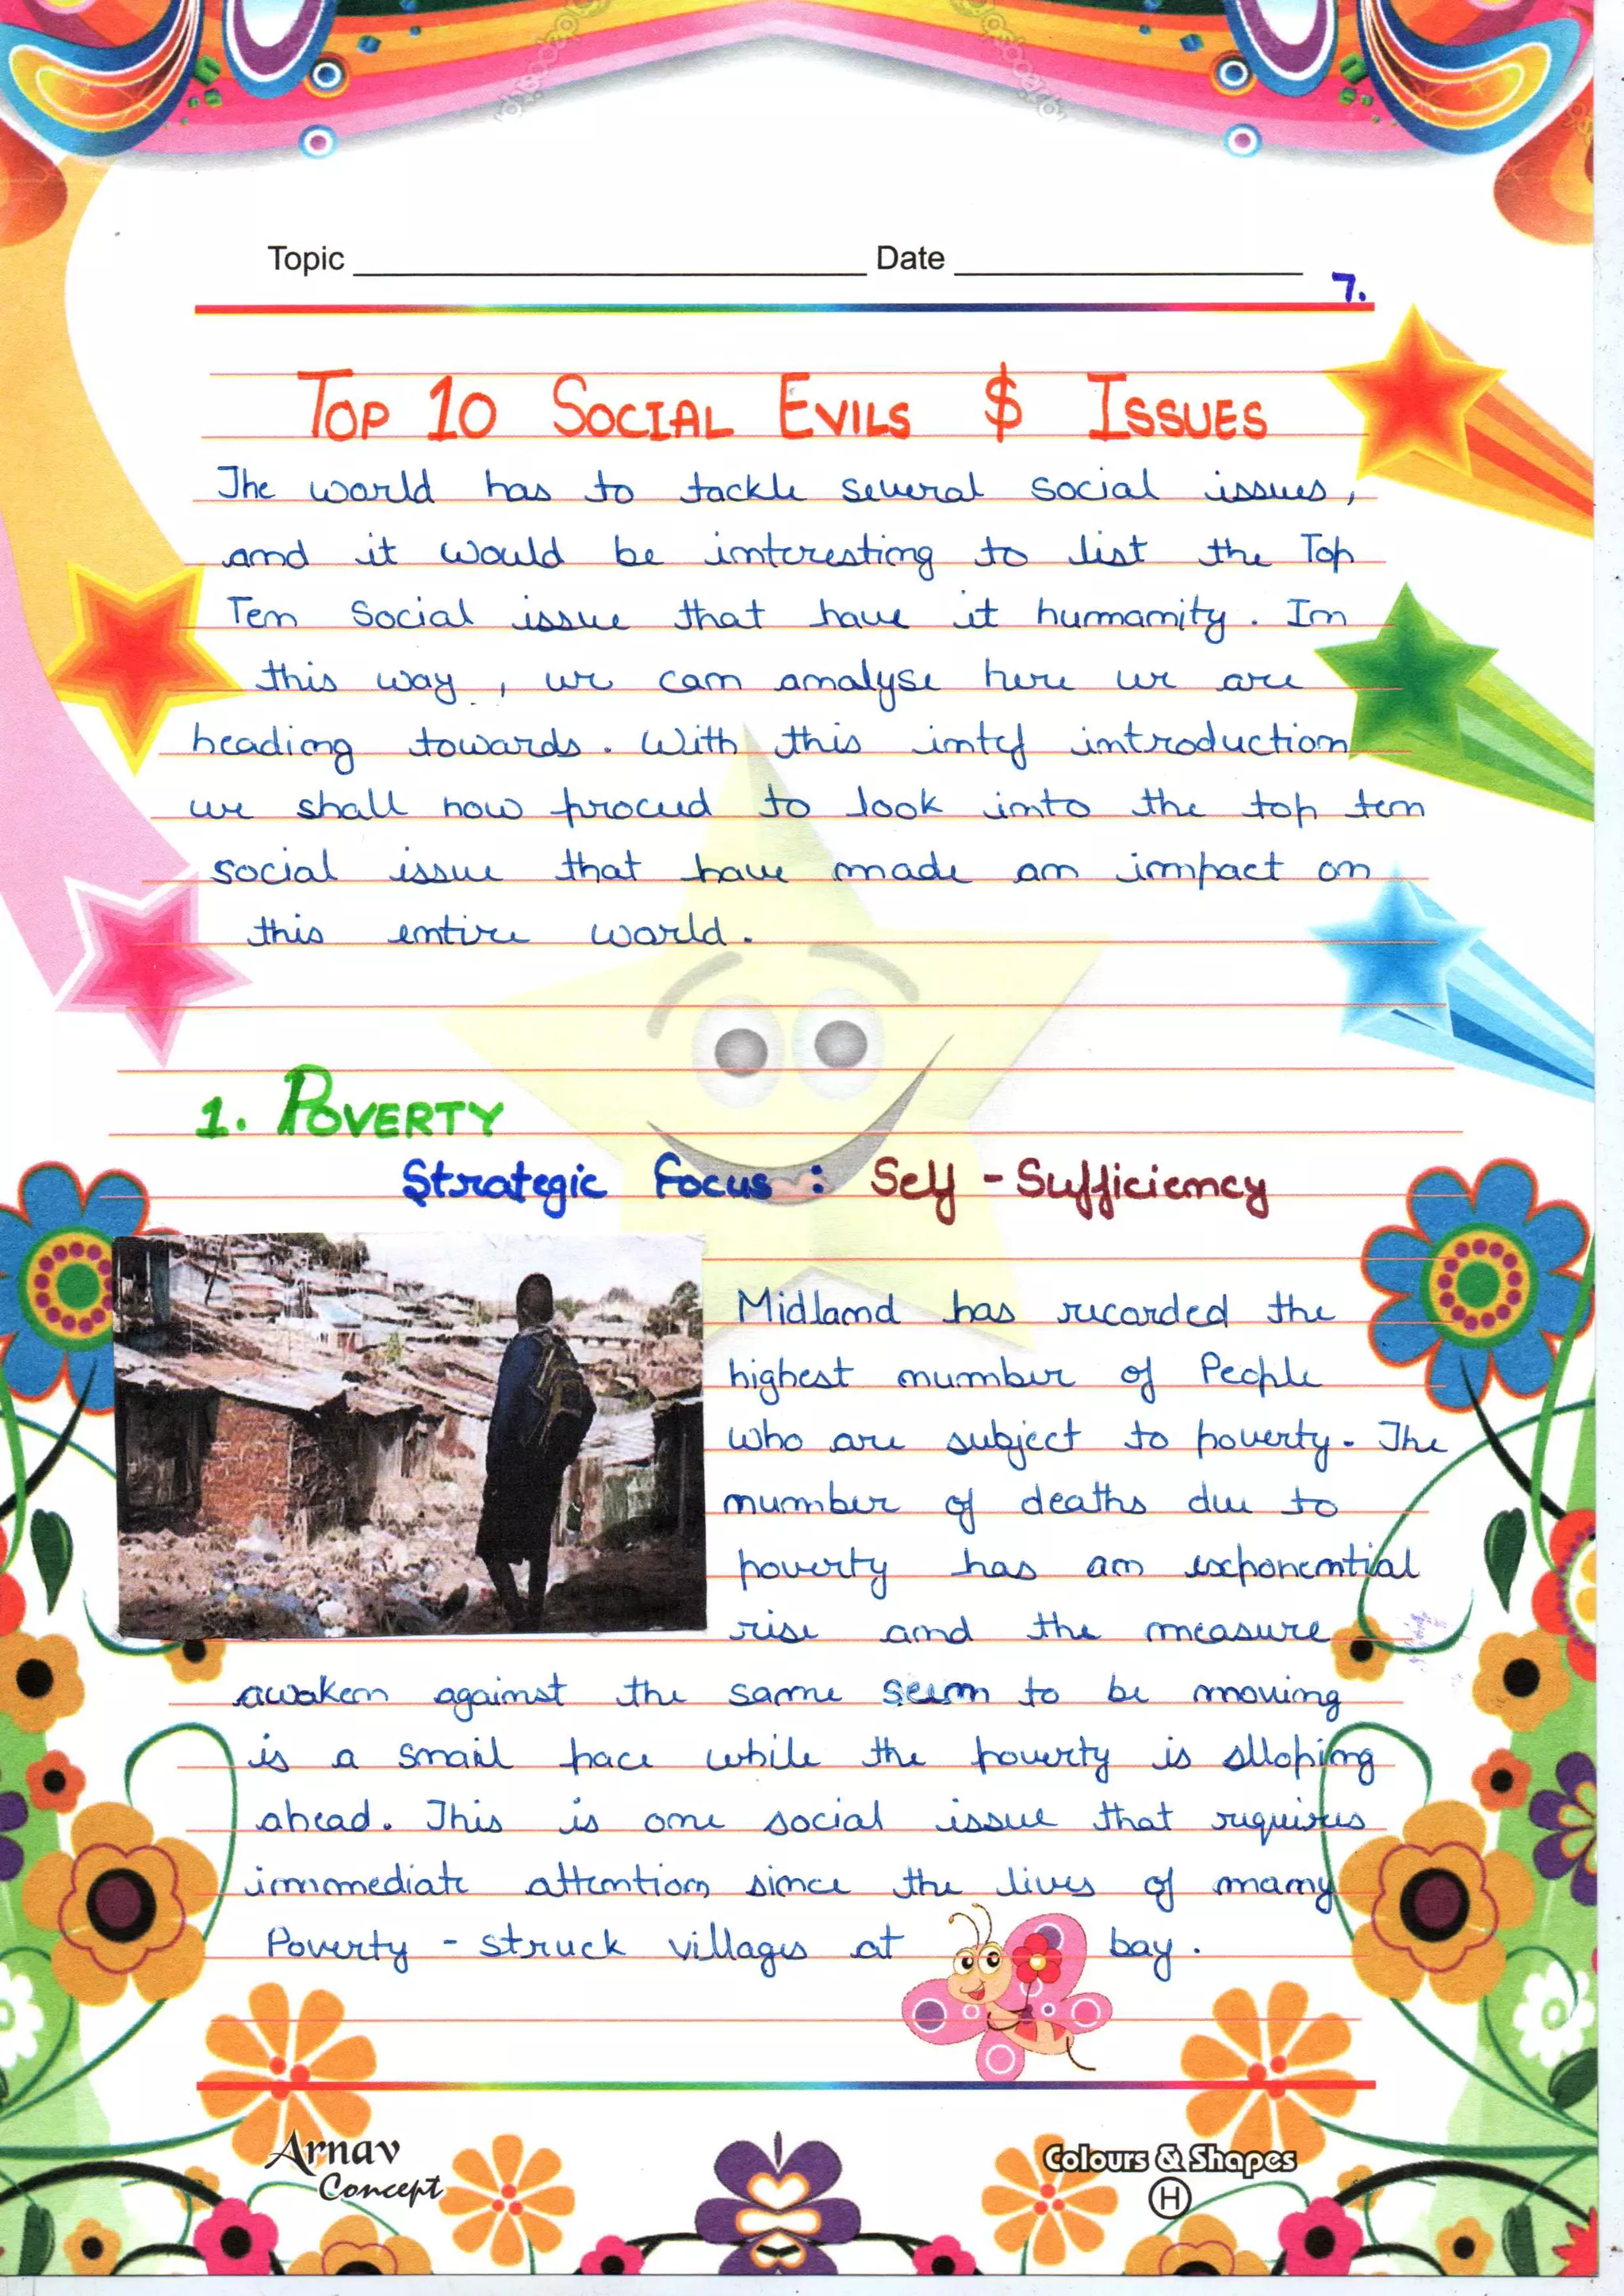 Topic Date
7.
TOP 10 SOCIAL EVILS $ ISSUES
The world has to tackle several social issues,
and it would be interesting to list the Top
Ten Social issue that have it humanity. In
this way, we can analyse here we are
heading towards. With this introduction
we shall now proceed to look into the top ten
social issue that have made an impact on
this entire world.
1. POVERTY
Strategic Focus : Self - Sufficiency
Midland has recorded the
highest number of People
who are subject to poverty. The
number of deaths due to
poverty has an exponential
rise and the measure
awaken against the same seem to be moving
is a snail pace while the poverty is slloping
ahead. This is one social issue that requires
immediate attention since the lives of many
Poverty - struck villages at bay.
Arnav
Concept
Colours & Shapes
H